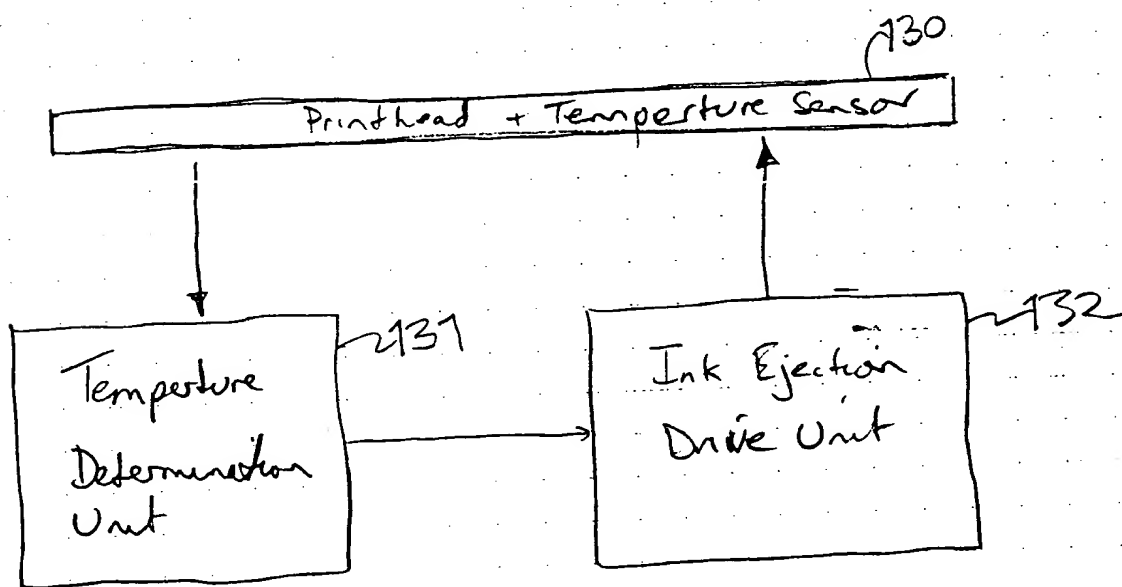 130
Printhead + Temperture Sensor
131
132
Temperture
Determination
Unit
Ink Ejection
Drive Unit